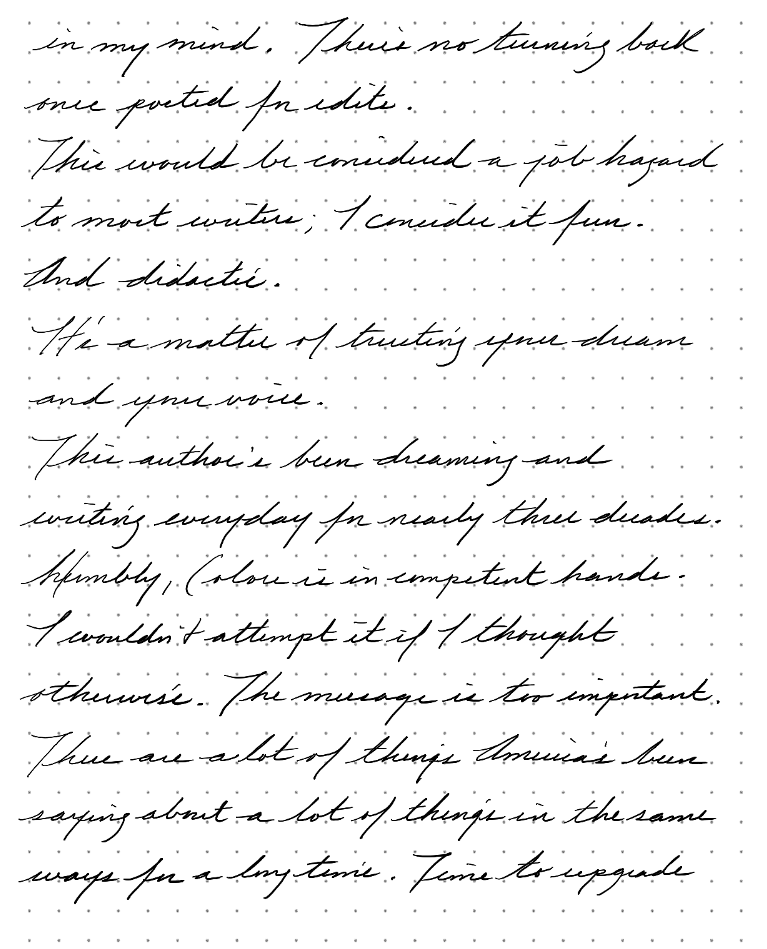 in my mind. There's no turning back
once posted for edits.
This would be considered a job hazard
to most writers; I consider it fun.
And didactic.
It's a matter of trusting your dream
and your voice.
This author's been dreaming and
writing everyday for nearly three decades.
Humbly, Colour is in competent hands.
I wouldn't attempt it if I thought
otherwise. The message is too important.
There are a lot of things America's been
saying about a lot of things in the same
ways for a long time. Time to upgrade